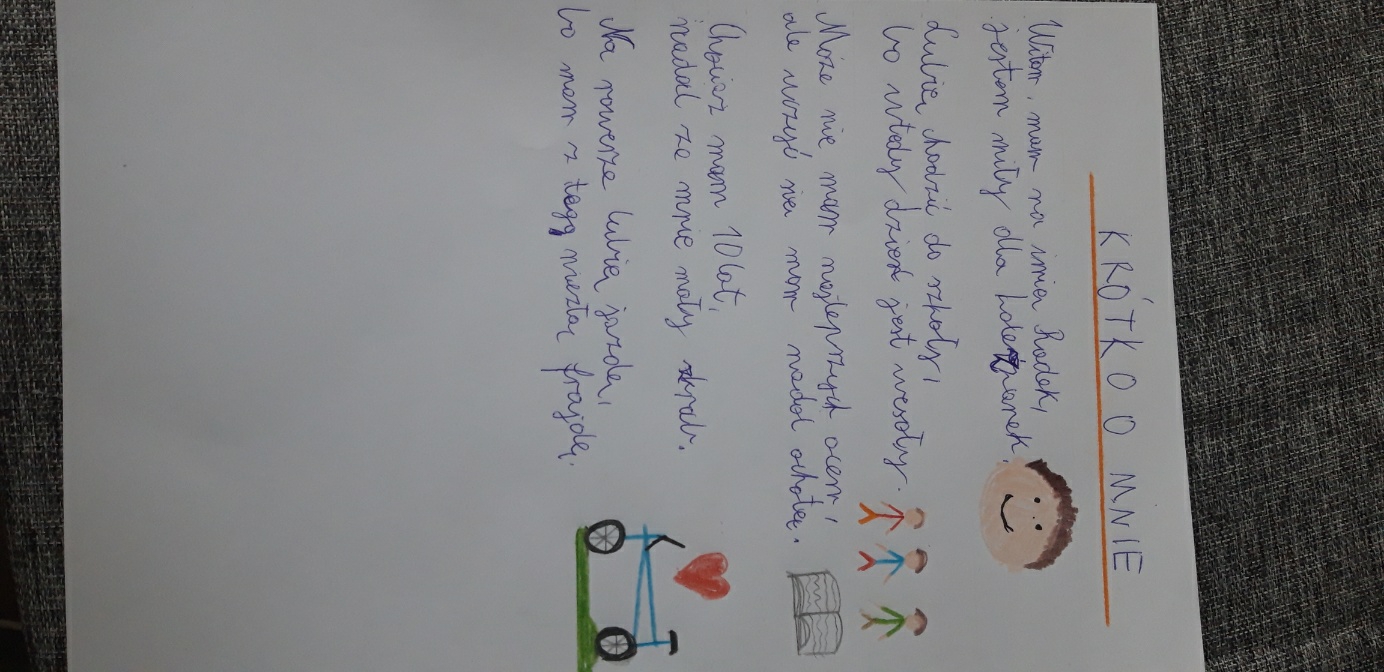 KRÓTKO O MNIE
Witam, mam na imię Radek,
jestem miły dla koleżanek.
Lubię chodzić do szkoły,
bo wtedy dzień jest wesoły.
Może nie mam najlepszych ocen,
ale uczyć się mam nadal ochotę.
Chociaż mam 10 lat,
nadal ze mnie mały
Na rowerze lubię jazdę,
bo mam z tego niezłą frajdę.